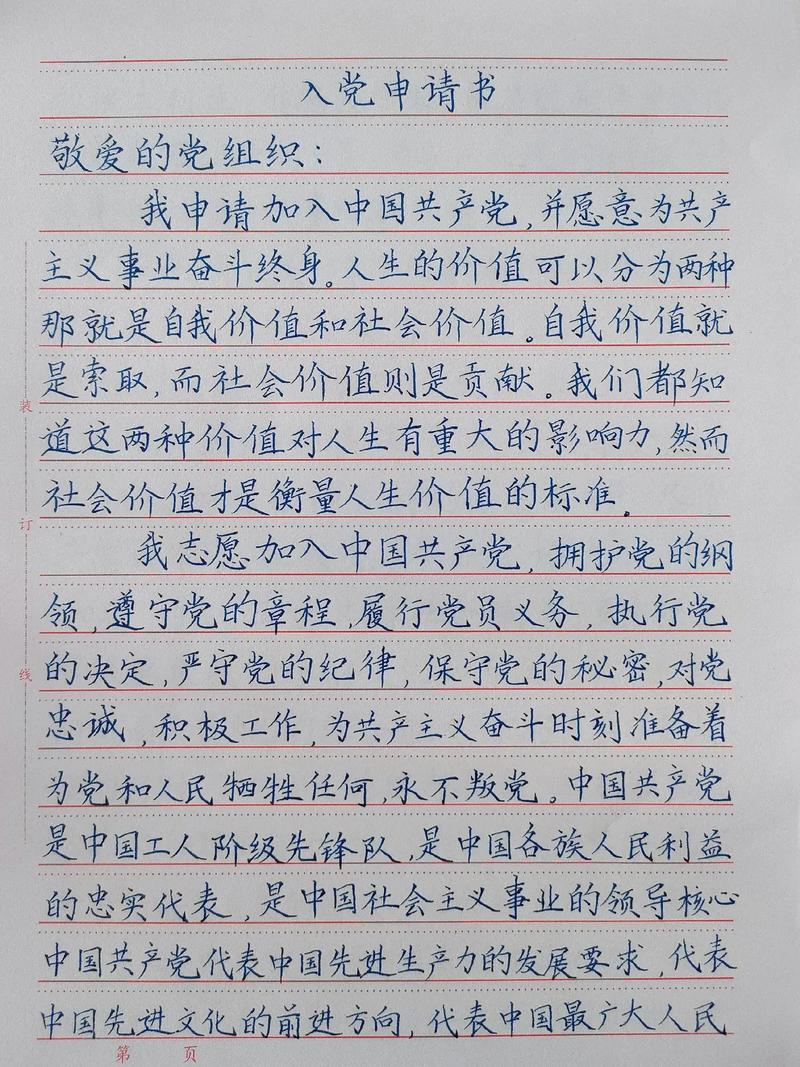 入党申请书
敬爱的党组织：
我申请加入中国共产党，并愿意为共产
主义事业奋斗终身。人生的价值可以分为两种
那就是自我价值和社会价值。自我价值就
是索取，而社会价值则是贡献。我们都知
道这两种价值对人生有重大的影响力，然而
社会价值才是衡量人生价值的标准。
我志愿加入中国共产党，拥护党的纲
领，遵守党的章程，履行党员义务，执行党
的决定，严守党的纪律，保守党的秘密，对党
忠诚，积极工作，为共产主义奋斗时刻准备着
为党和人民牺牲任何，永不叛党。中国共产党
是中国工人阶级先锋队，是中国各族人民利益
的忠实代表，是中国社会主义事业的领导核心
中国共产党代表中国先进生产力的发展要求，代表
中国先进文化的前进方向，代表中国最广大人民
装
订
线
第 页